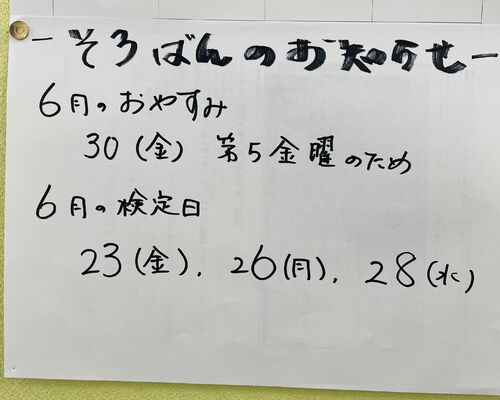 -そろばんのお知らせ-
6月のおやすみ
30(金) 第5金曜のため
6月の検定日
23(金), 26(月), 28(水)